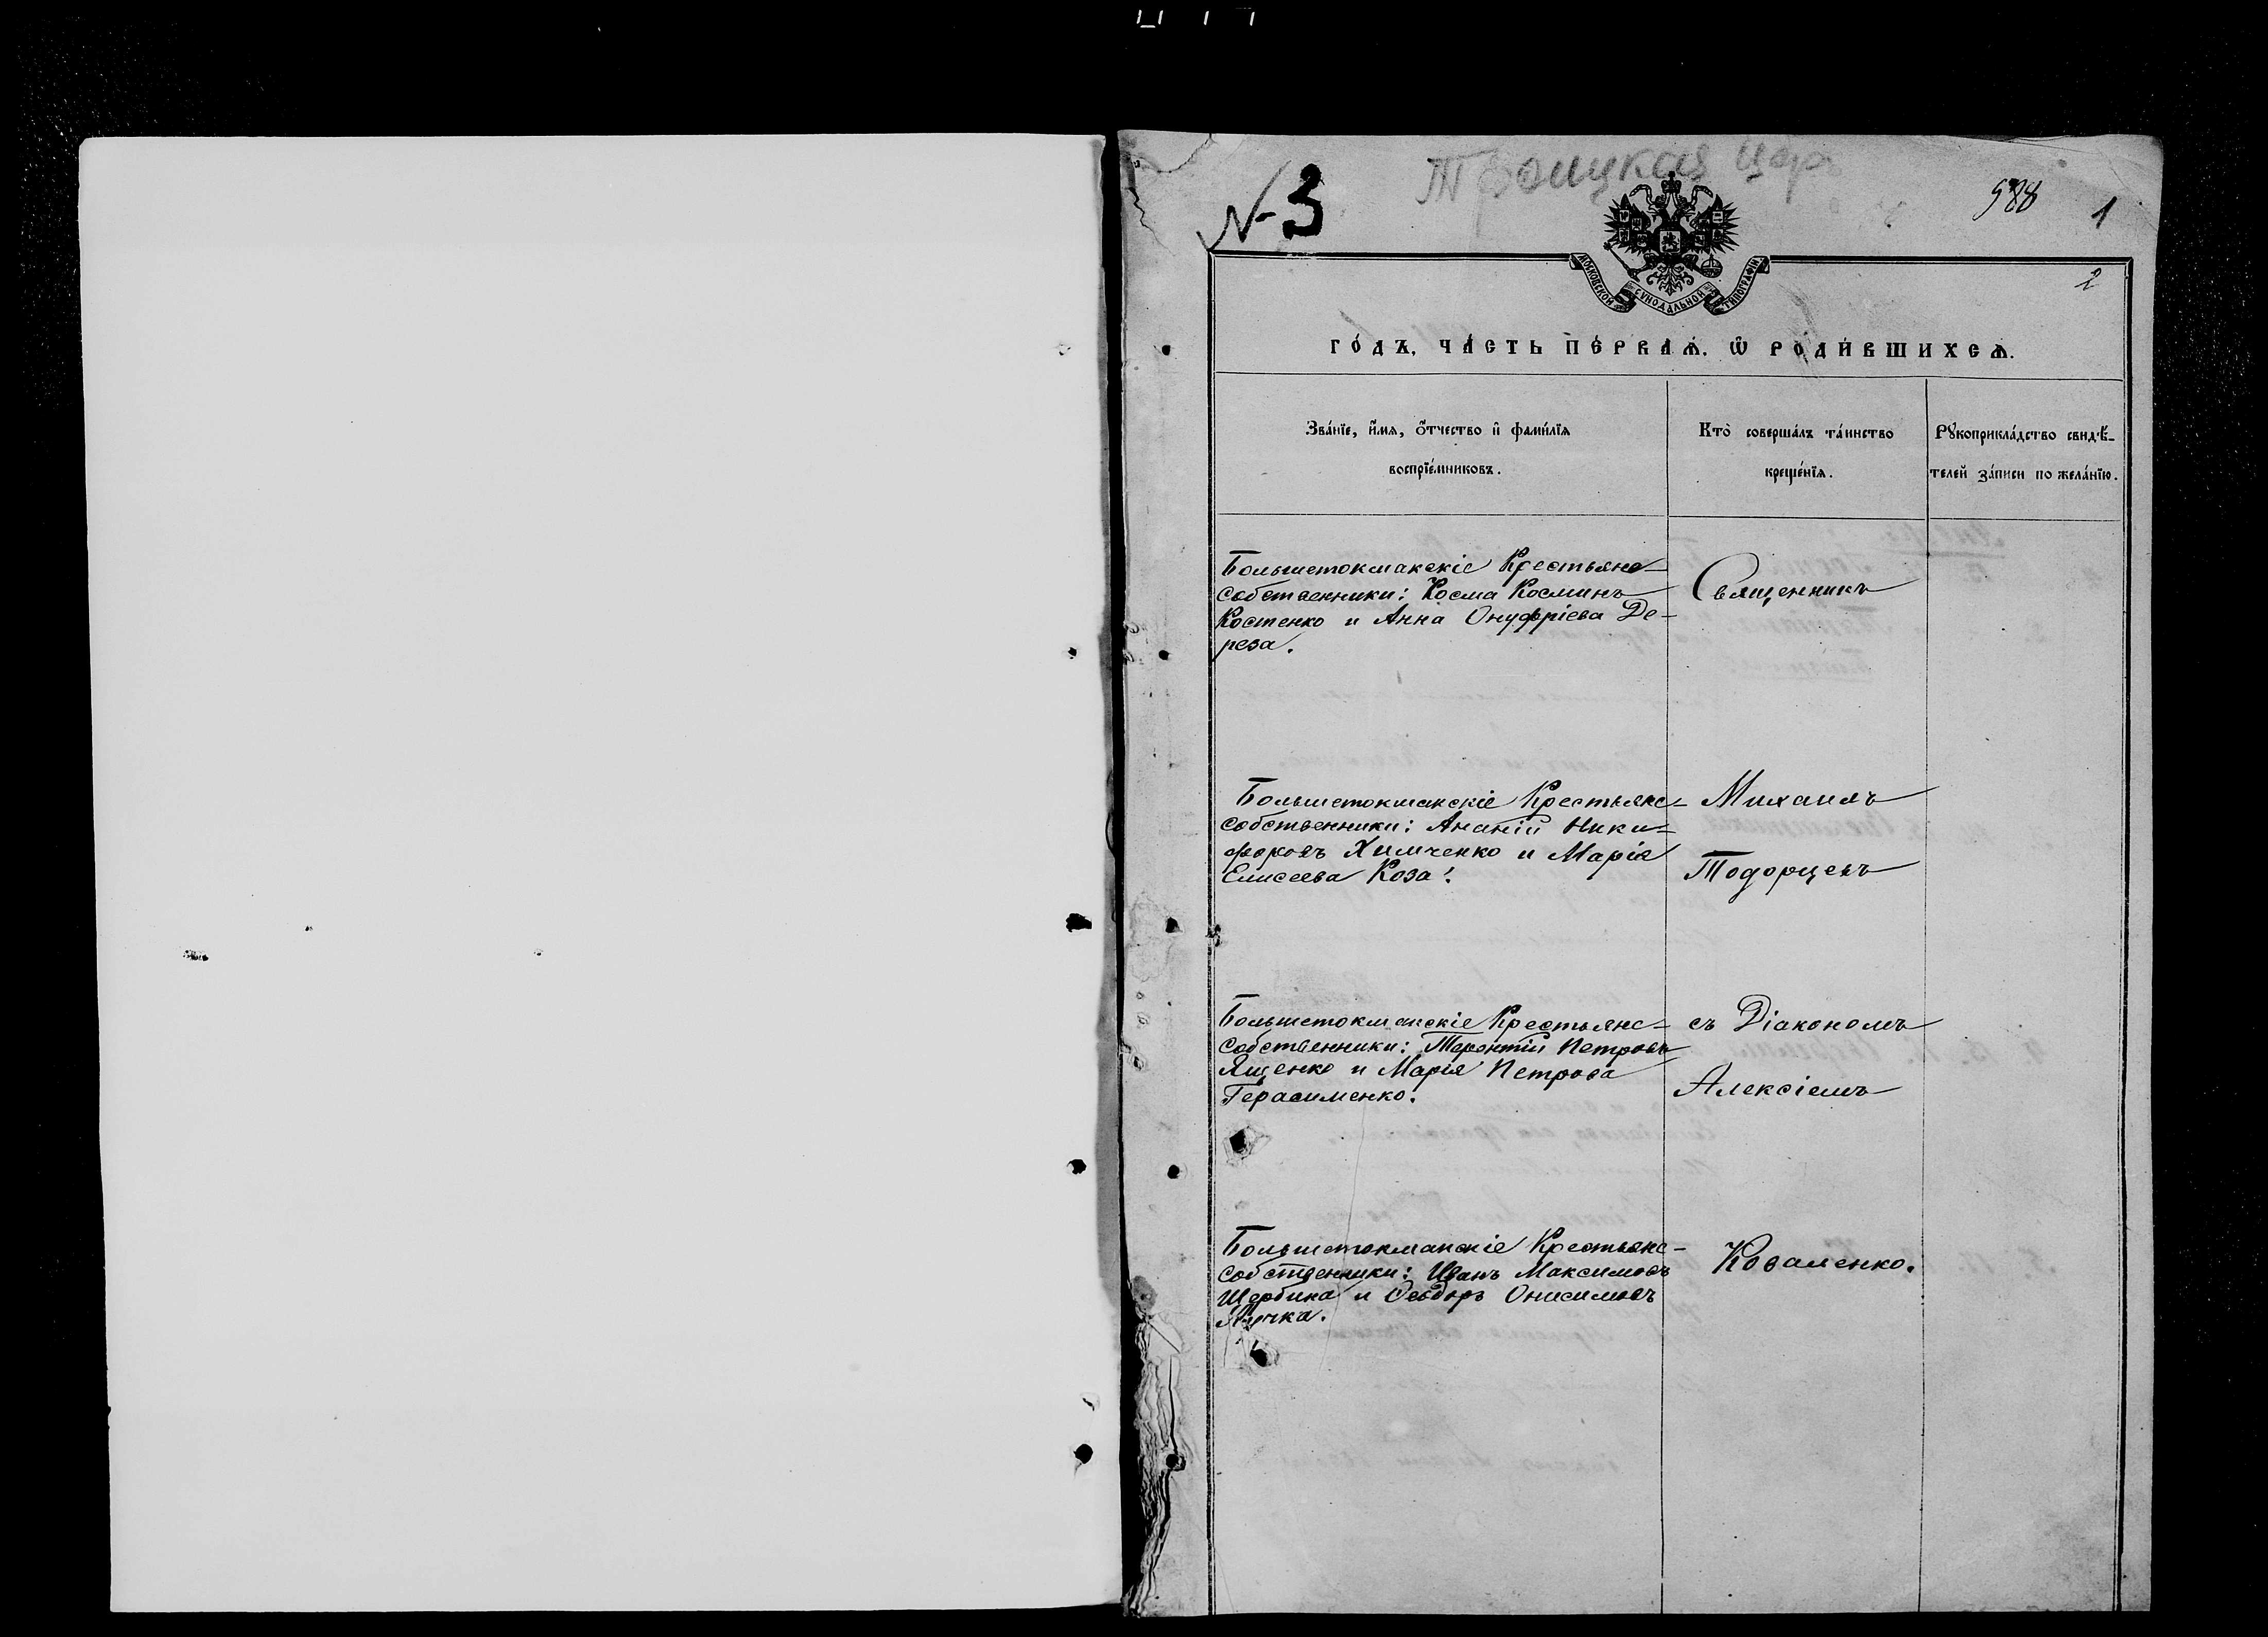 Троицкая цер
№ 3
588
1
2
МОСКОВСКОЙ СѴНОДАЛЬНОЙ ТИПОГРАФІИ
ГО́ДЪ. ЧА́СТЬ ПЕ́РВАѦ. Ѡ҆ РОДИ́ВШИХСѦ.
Зва́нїе, и҆́мѧ, ѻ҆́тчество и҆ фами́лїѧ
воспрїе́мниковъ.
Кто̀ соверша́лъ та́инство
креще́нїѧ.
Рꙋкоприкла́дство свидѣ́-
телей за́писи по жела́нїю.
Большетокмакскіе Крестьяне-
собственники: Косма Косминъ
Костенко и Анна Онуфріева Де-
реза.
Священникъ
Большетокмакскіе Крестьяне-
собственники: Ананій Ники-
форовъ Химченко и Марія
Елисеева Коза.
Михаилъ
Тодорцевъ
Большетокмакскіе Крестьяне-
собственники: Терентій Петровъ
Ященко и Марія Петрова
Герасименко.
съ Діакономъ
Алексіемъ
Большетокмакскіе Крестьяне-
собственники: Иванъ Максимовъ
Щербина и Ѳеодоръ Онисимовъ
Коваленко.